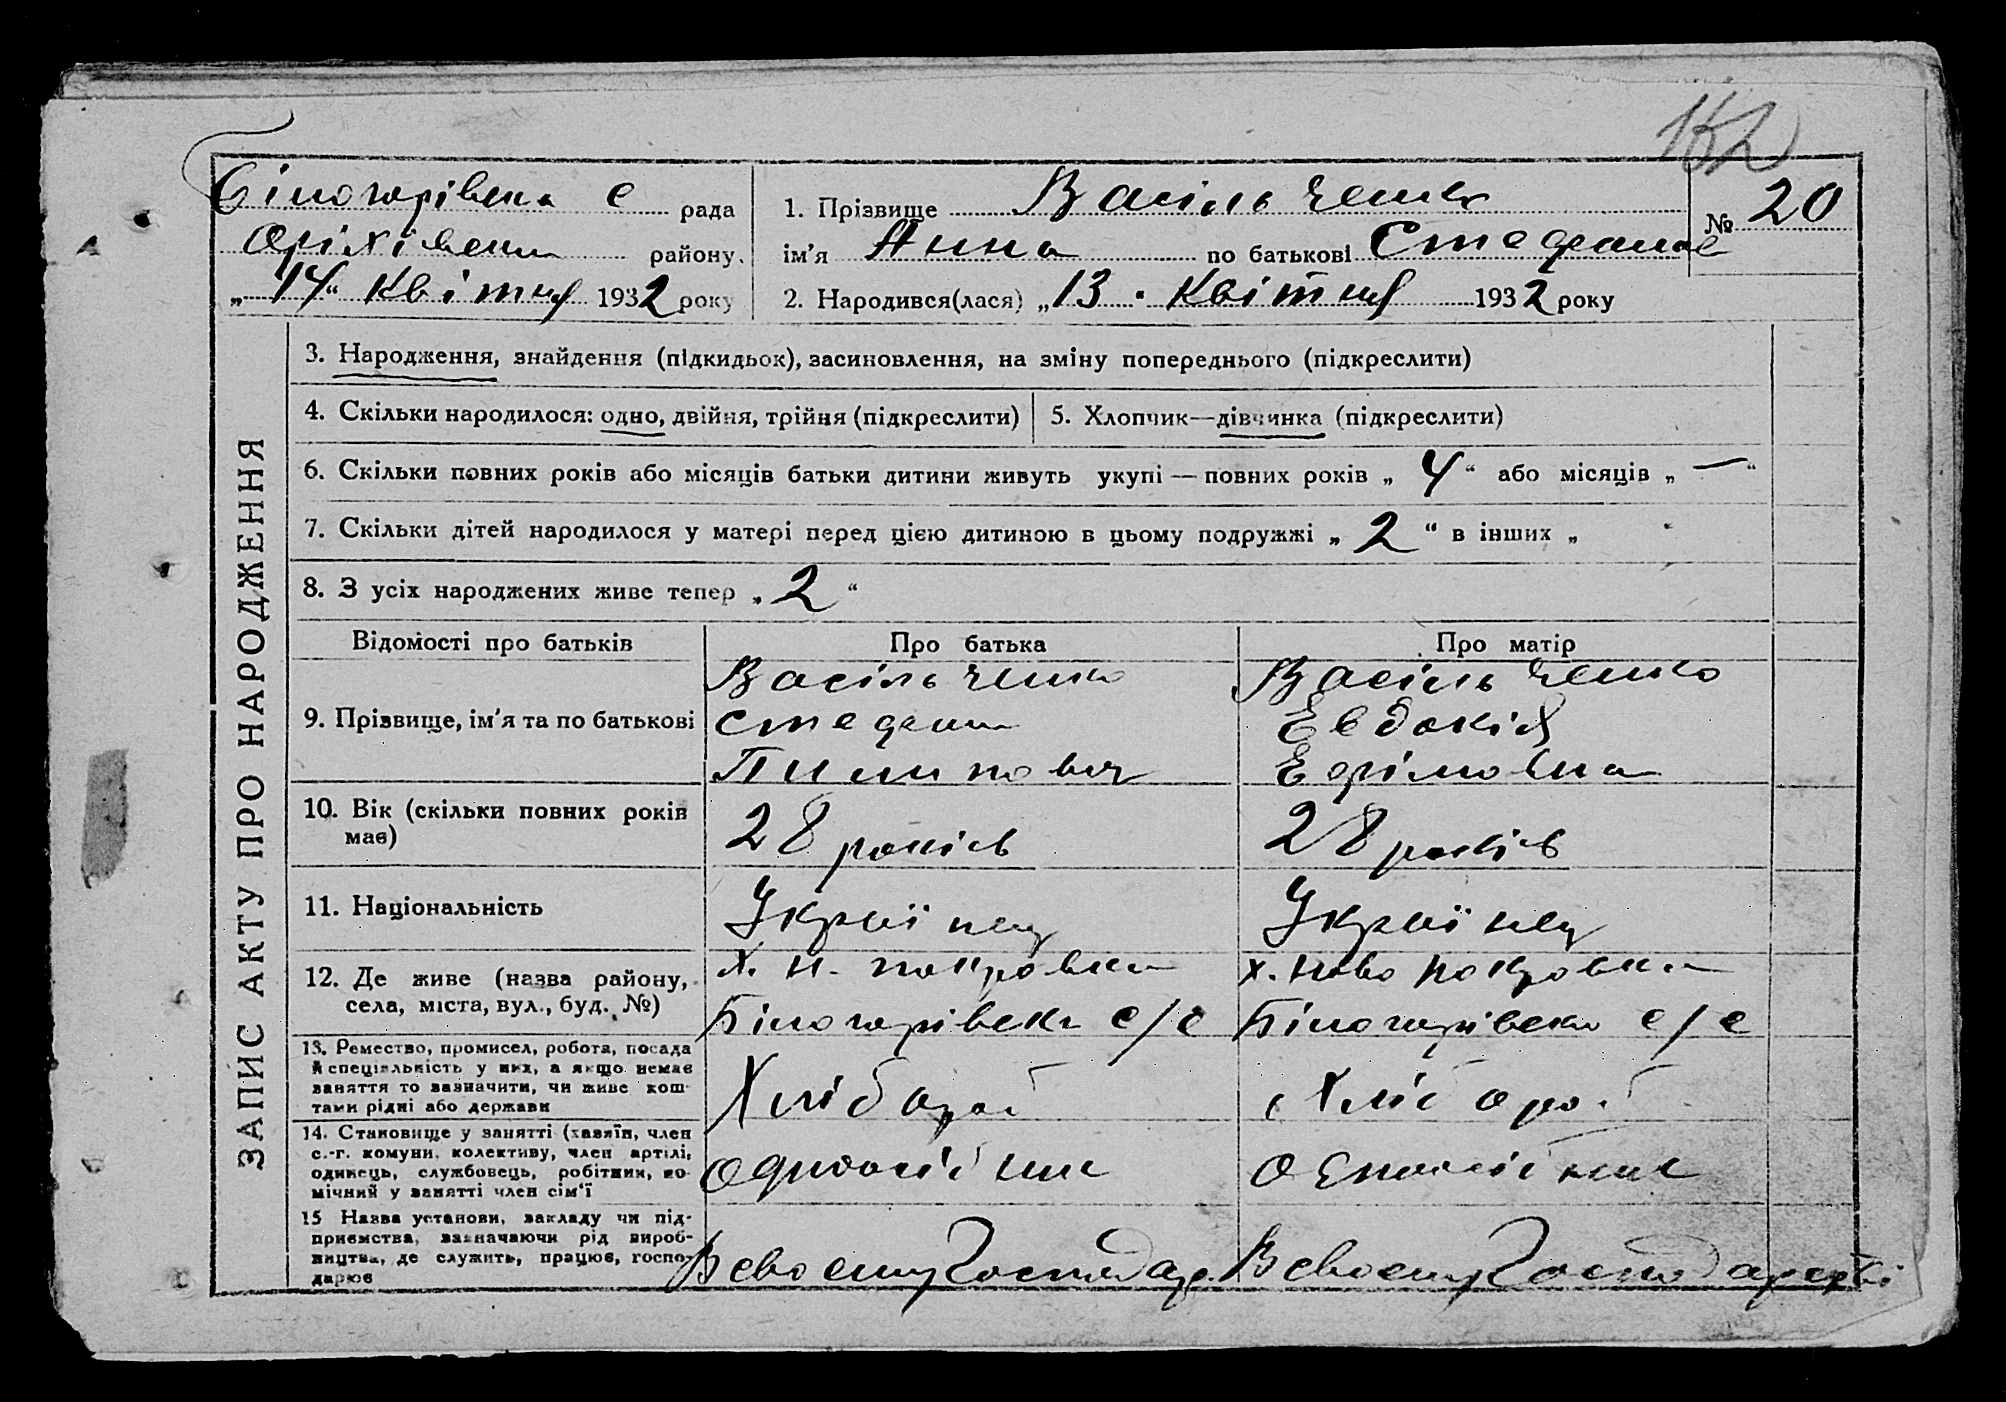 152
Білогорівска с рада
Оріхівськ району.
„14“ Квітня 1932 року
1. Прізвище Васільченко
ім'я Анна по батькові Стефанов
2. Народився(лася) „13. Квітня 1932 року
№ 20
ЗАПИС АКТУ ПРО НАРОДЖЕННЯ
3. Народження, знайдення (підкидьок), засиновлення, на зміну попереднього (підкреслити)
4. Скільки народилося: одно, двійня, трійня (підкреслити)
5. Хлопчик—дівчинка (підкреслити)
6. Скільки повних років або місяців батьки дитини живуть укупі — повних років „4“ або місяців „—“
7. Скільки дітей народилося у матері перед цією дитиною в цьому подружжі „2“ в інших „
8. З усіх народжених живе тепер „2“
Відомості про батьків
Про батька
Про матір
9. Прізвище, ім'я та по батькові
Васільченко
Стефан
Пилипович
Васільченко
Евдокія
Ефімовна
10. Вік (скільки повних років
має)
28 років
28 років
11. Національність
Українец
Українец
12. Де живе (назва району,
села, міста, вул., буд. №)
х. Н. Покровка
Білогорівск с/с
х. Ново Покровка
Білогорівско с/с
13. Ремество, промисел, робота, посада
й спеціяльність у них, а якщо немає
заняття то зазначити, чи живе кош-
тами рідні або держави
Хлібороб
Хлібороб
14. Становище у занятті (хазяїн, член
с.-г. комуни, колективу, член артілі,
одинець, службовець, робітник, по-
мічний у занятті член сім'ї
Одноосібник
Одноосібник
15 Назва установи, закладу чи під-
приємства, зазначаючи рід вироб-
ництва, де служить, працює, госпо-
дарює
В своему Господар.
В своему Господарстві